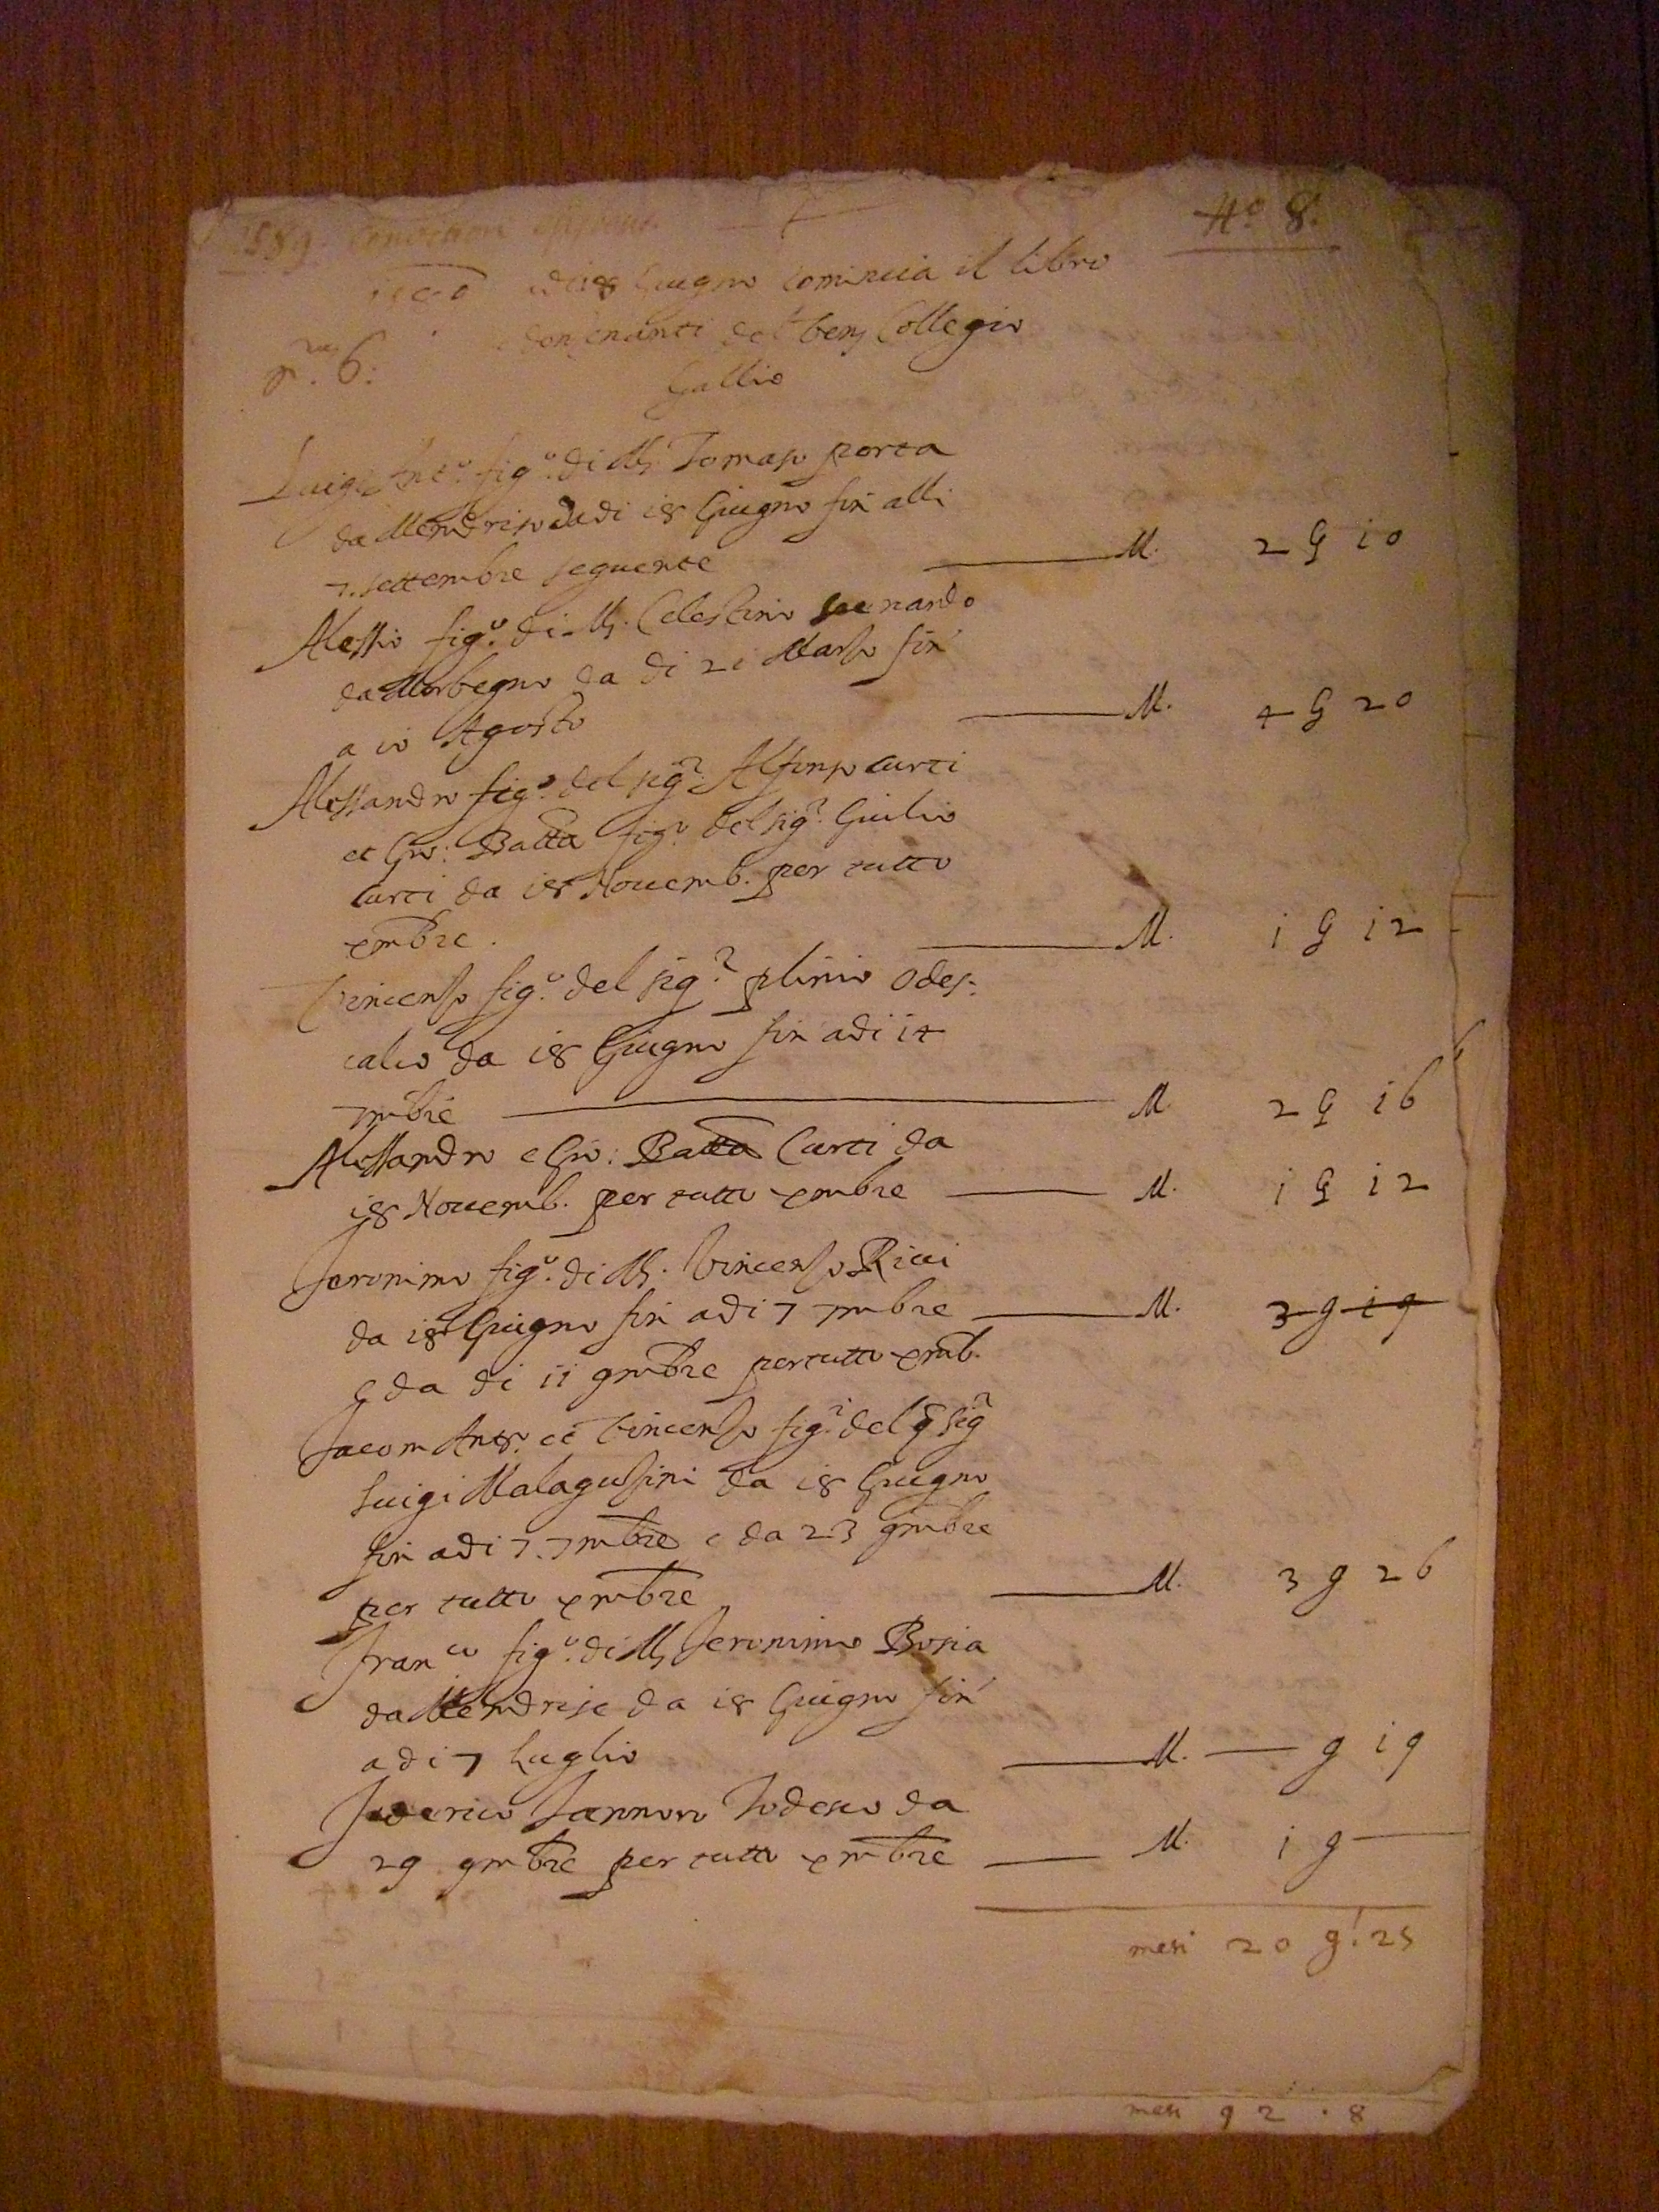 1589. Convittori
N.o 8.
adi 18 Giugno Comincia il libro
del Ven. Collegio
Gallio
n.o 6.
Luigi Ant.o fig.o di M. Tomaso porta
da Mendriso da di 18 Giugno fin alli
7. settembre seguente M. 2 G 10
Alessio fig.o di M. Celestino
da Morbegno da di 21 Marso fin
a 10 Agosto M. 4 G 20
Alessandro fig.o del sig.r Alfonso Curti
et Gio: Batta fig.o del sig.r Giulio
Curti da 18 Novemb. per tutto
xmbre. M. 1 G 12
Vincenso fig.o del sig.r plinio Odes:
calco da 18 Giugno fin adi 14
7mbre M. 2 G 16
Alessandro e Gio: Batta Curti da
18 Novemb. per tutto xmbre M. 1 G 12
Jeronimo fig.o di M. Vincenso Ricci
da 18 Giugno fin adi 7 7mbre M. 3 g 19
e da di 11 9mbre per tutto xmb.
Jacom Ant.o et Vincenso fig.i del q sig.r
Luigi Malagusini da 18 Giugno
fin adi 7. 7mbre e da 23 9mbre
per tutto xmbre M. 3 g 26
Fran.co fig.o di M. Jeronimo Bosia
da Mendrise da 18 Giugno fin
adi 7 Luglio M. — g 19
Federico Todesco da
29 9mbre per tutto xmbre M. 1 g —
mesi 20 g.i 25
mesi 92 . 8